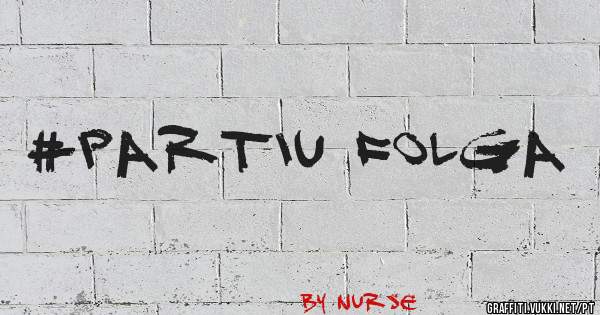 #PARTIU FOLGA
BY NURSE
GRAFFITI.VUKKI.NET/PT